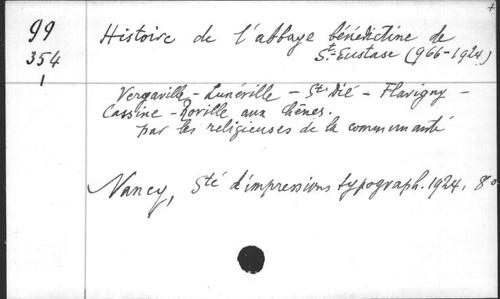 99
354
1
Histoire de l'abbaye bénédictine de
St-Eustase (966-1924)
Vergaville - Lunéville - St Dié - Flavigny -
Cassine - Roville aux Chênes.
par les religieuses de la communauté
Nancy, Sté d'impressions typograph. 1924, 8º